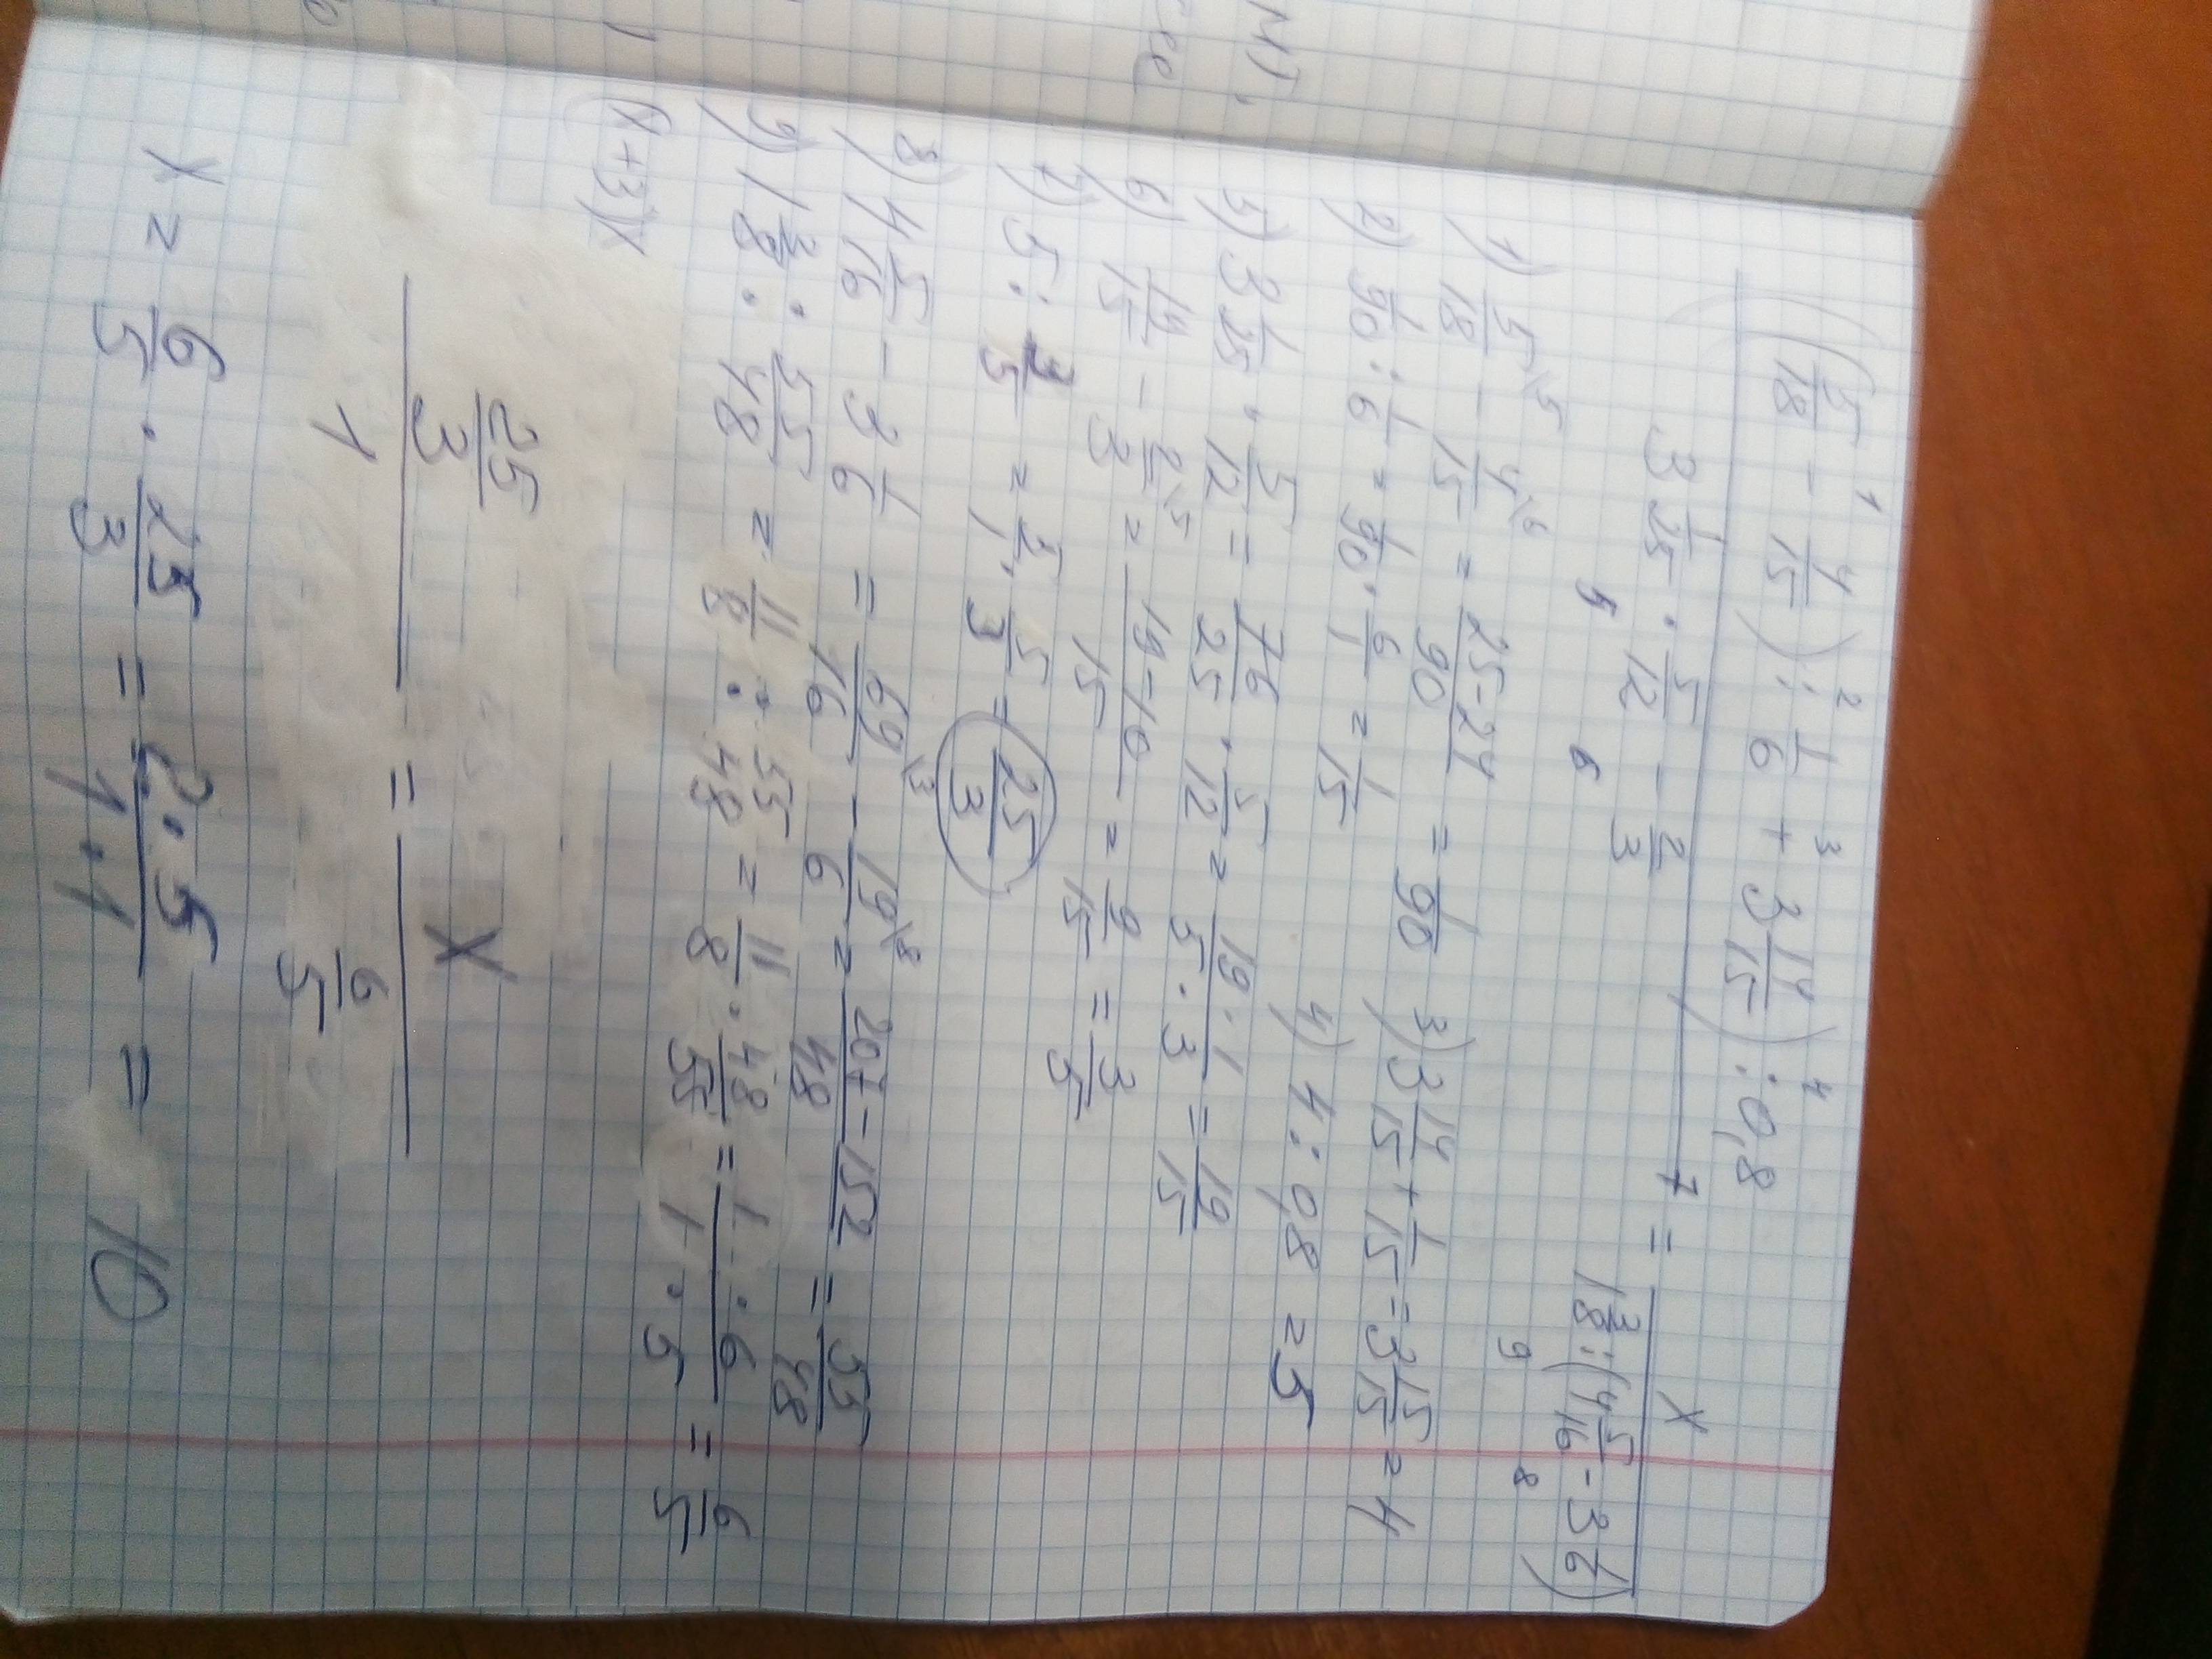 ((5/18 - 4/15) : 1/6 + 3 14/15) : 0,8
1 2 3 4
3 1/25 · 5/12 - 2/3
5 6 7
= x / (1 3/8 : (4 5/16 - 3 1/6))
9 8
1) 5/18 \5 - 4/15 \6 = (25-24)/90 = 1/90 3) 3 14/15 + 1/15 = 3 15/15 = 4
2) 1/90 : 1/6 = 1/90 · 6/1 = 1/15 4) 4 : 0,8 = 5
5) 3 1/25 · 5/12 = 76/25 · 5/12 = (19 · 1)/(5 · 3) = 19/15
6) 19/15 - 2/3 \5 = (19-10)/15 = 9/15 = 3/5
7) 5 : 3/5 = 5/1 · 5/3 = 25/3
8) 4 5/16 - 3 1/6 = 69/16 \3 - 19/6 \8 = (207-152)/48 = 55/48
9) 1 3/8 : 55/48 = 11/8 : 55/48 = 11/8 · 48/55 = (1 · 6)/(1 · 5) = 6/5
(x+3)x
(25/3)/1 = x/(6/5)
x = 6/5 · 25/3 = (2 · 5)/(1 · 1) = 10